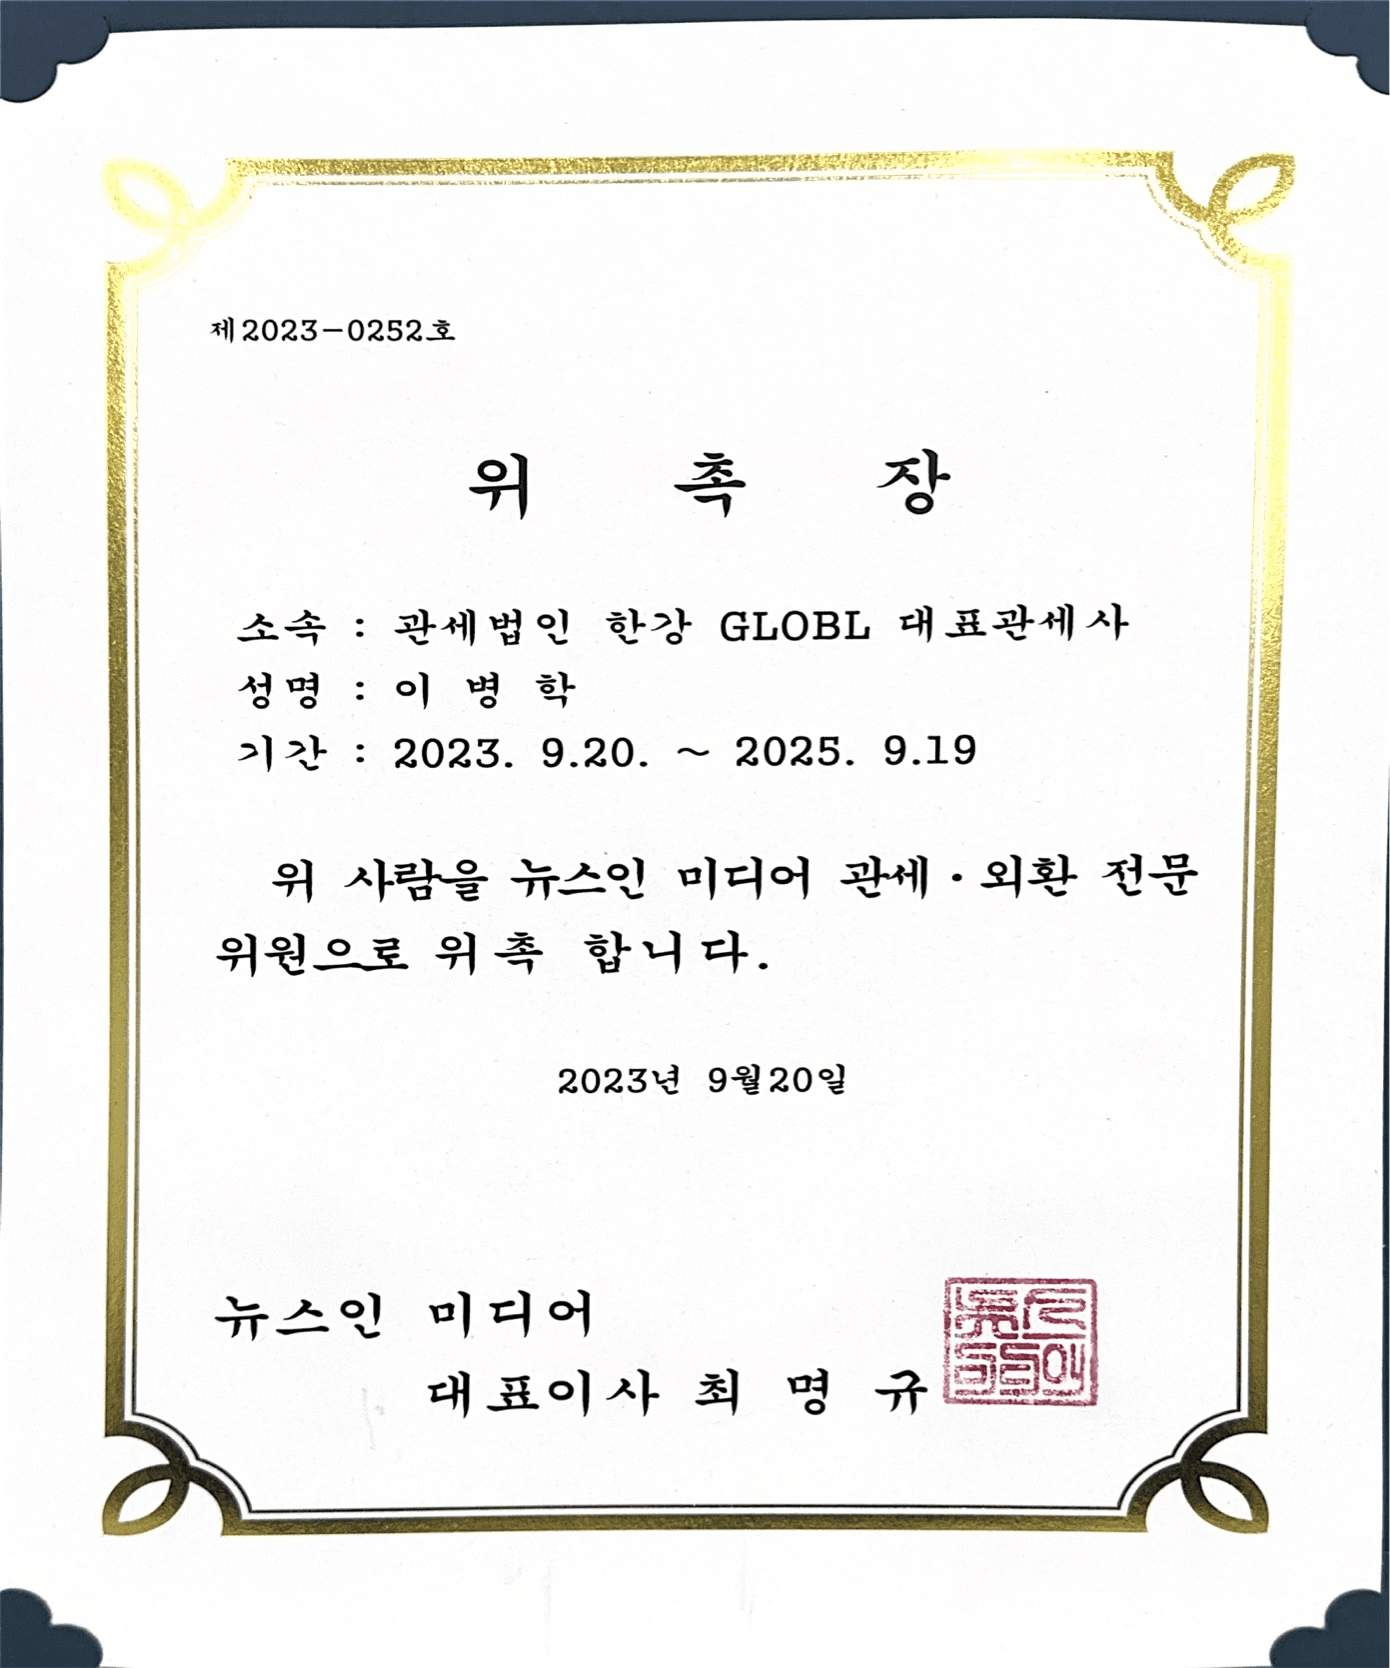 제2023-0252호
위 촉 장
소속 : 관세법인 한강 GLOBL 대표관세사
성명 : 이 병 학
기간 : 2023. 9.20. ~ 2025. 9.19
위 사람을 뉴스인 미디어 관세·외환 전문
위원으로 위촉 합니다.
2023년 9월20일
뉴스인 미디어
대표이사 최 명 규